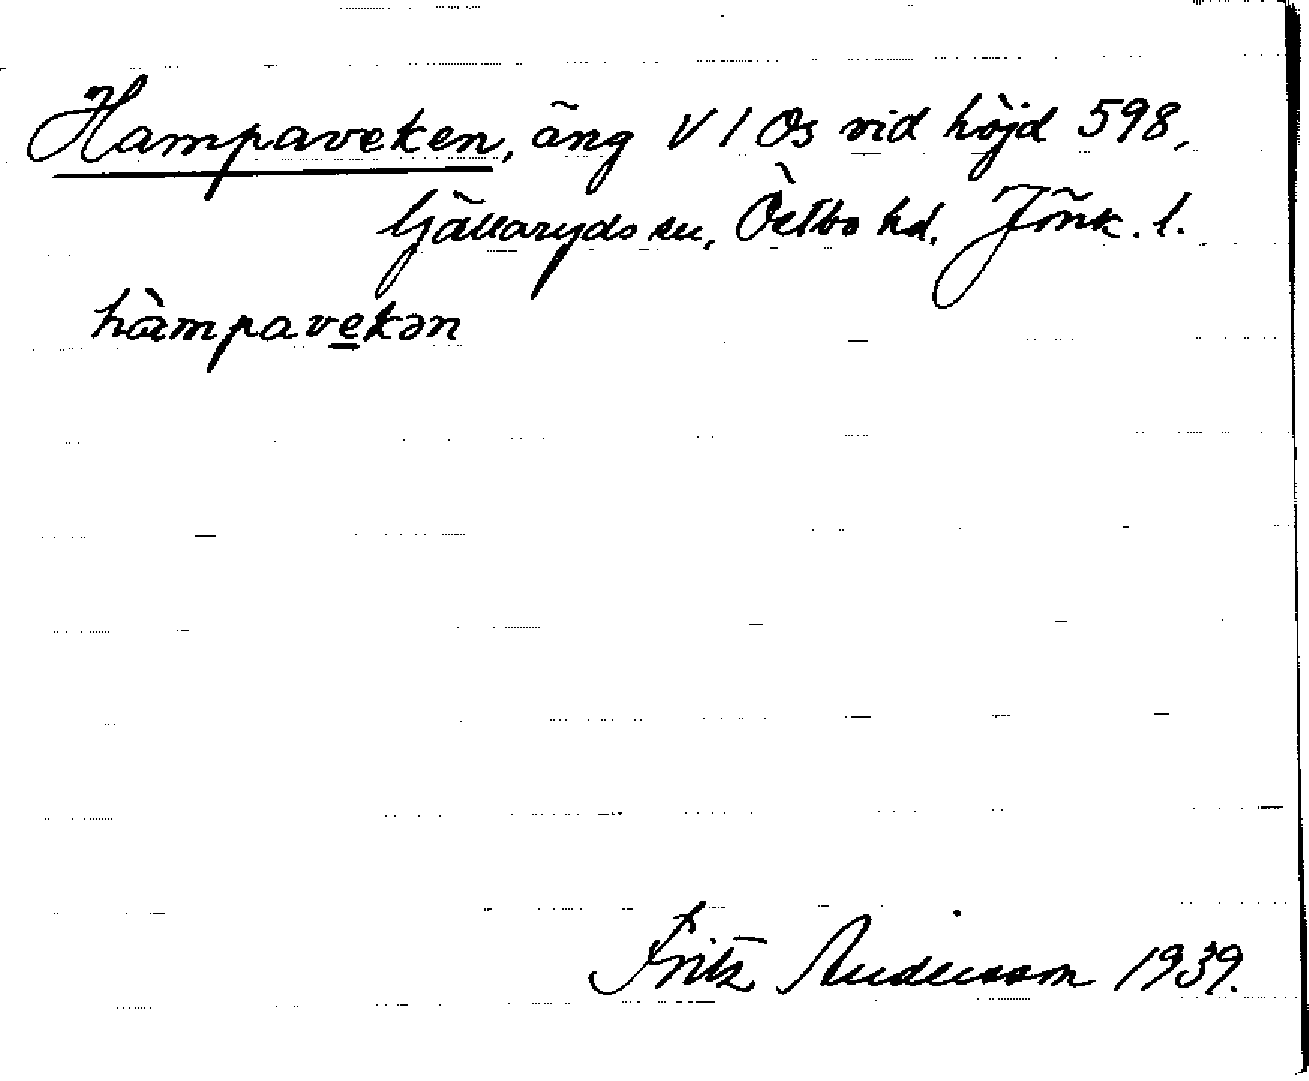 Hampaveken, äng V / Os vid höjd 598,
Gällaryds sn, Östbo hd. Jönk. l.
hàmpavekən
Fritz Andersson 1939.